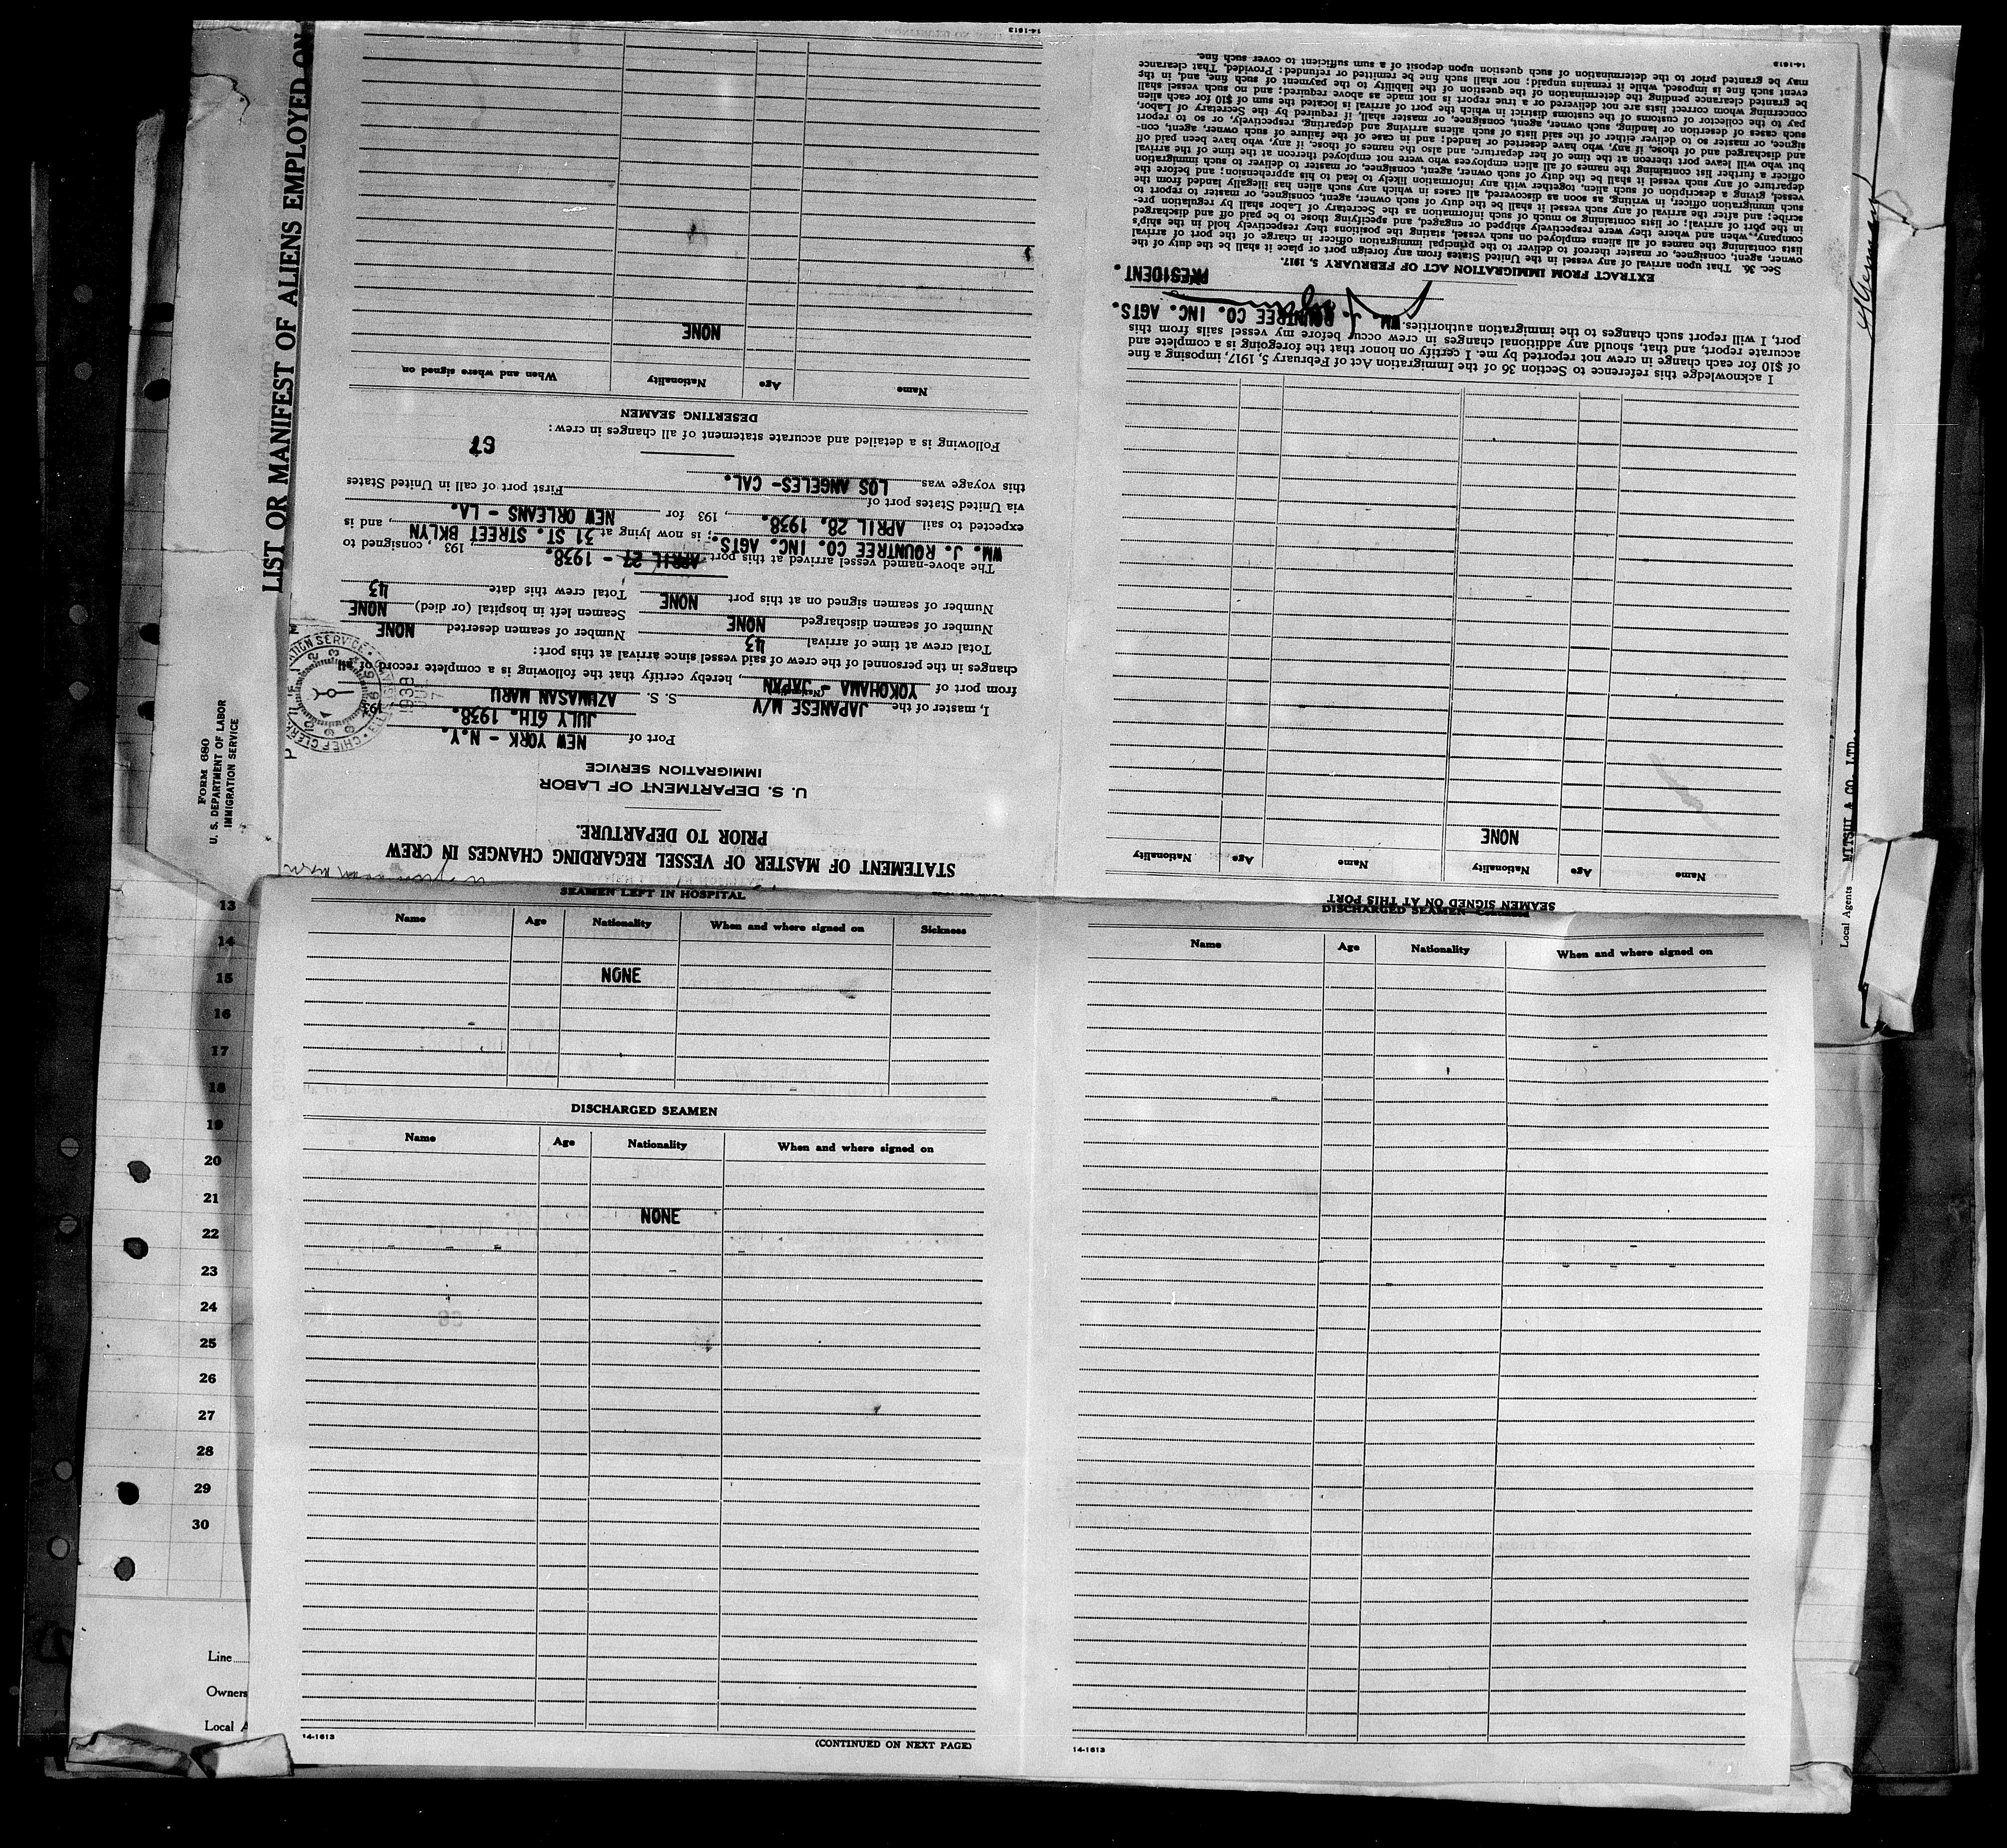 STATEMENT OF MASTER OF VESSEL REGARDING CHANGES IN CREW
PRIOR TO DEPARTURE.
U. S. DEPARTMENT OF LABOR
IMMIGRATION SERVICE
Port of NEW YORK - N.Y.
JULY 6TH. 1938. , 193
I, master of the JAPANESE M/V S. S. AZUMASAN MARU
from port of YOKOHAMA - JAPAN , hereby certify that the following is a complete record of all
changes in the personnel of the crew of said vessel since arrival at this port:
Total crew at time of arrival 43 Number of seamen deserted NONE
Number of seamen discharged NONE Seamen left in hospital (or died) NONE
Number of seamen signed on at this port NONE Total crew this date 43
The above-named vessel arrived at this port APRIL 27 - 1938. , 193 , consigned to
WM. J. ROUNTREE CO. INC. AGTS. ; is now lying at 31 ST. STREET BKLYN , and is
expected to sail APRIL 28. 1938. , 193 for NEW ORLEANS - LA.
via United States port of
this voyage was LOS ANGELES- CAL. First port of call in United States
67
Following is a detailed and accurate statement of all changes in crew:
DESERTING SEAMEN
Name Age Nationality When and where signed on
NONE
14-1613
SEAMEN SIGNED ON AT THIS PORT
Name Age Nationality Name Age Nationality
NONE
I acknowledge this reference to Section 36 of the Immigration Act of February 5, 1917, imposing a fine
of $10 for each change in crew not reported by me. I certify on honor that the foregoing is a complete and
accurate report, and that, should any additional changes in crew occur before my vessel sails from this
port, I will report such changes to the immigration authorities.
WM. J. ROUNTREE CO. INC. AGTS.
PRESIDENT.
EXTRACT FROM IMMIGRATION ACT OF FEBRUARY 5, 1917.
Sec. 36. That upon arrival of any vessel in the United States from any foreign port or place it shall be the duty of the
owner, agent, consignee, or master thereof to deliver to the principal immigration officer in charge of the port of arrival
lists containing the names of all aliens employed on such vessel, stating the positions they respectively hold in the ship's
company, when and where they were respectively shipped or engaged, and specifying those to be paid off and discharged
in the port of arrival; or lists containing so much of such information as the Secretary of Labor shall by regulation pre-
scribe; and after the arrival of any such vessel it shall be the duty of such owner, agent, consignee, or master to report to
such immigration officer, in writing, as soon as discovered, all cases in which any such alien has illegally landed from the
vessel, giving a description of such alien, together with any information likely to lead to his apprehension; and before the
departure of any such vessel it shall be the duty of such owner, agent, consignee, or master to deliver to such immigration
officer a further list containing the names of all alien employees who were not employed thereon at the time of the arrival
but who will leave port thereon at the time of her departure, and also the names of those, if any, who have been paid off
and discharged and of those, if any, who have deserted or landed; and in case of the failure of such owner, agent, con-
signee, or master so to deliver either of the said lists of such aliens arriving and departing, respectively, or so to report
such cases of desertion or landing, such owner, agent, consignee, or master shall, if required by the Secretary of Labor,
pay to the collector of customs of the customs district in which the port of arrival is located the sum of $10 for each alien
concerning whom correct lists are not delivered or a true report is not made as above required; and no such vessel shall
be granted clearance pending the determination of the question of the liability to the payment of such fine, and, in the
event such fine is imposed, while it remains unpaid; nor shall such fine be remitted or refunded: Provided, That clearance
may be granted prior to the determination of such question upon deposit of a sum sufficient to cover such fine.
14-1613
SEAMEN LEFT IN HOSPITAL
Name Age Nationality When and where signed on Sickness
NONE
DISCHARGED SEAMEN
Name Age Nationality When and where signed on
NONE
14-1613
(CONTINUED ON NEXT PAGE)
DISCHARGED SEAMEN—Continued
Name Age Nationality When and where signed on
14-1613
LIST OR MANIFEST OF ALIENS EMPLOYED ON
FORM 680
U. S. DEPARTMENT OF LABOR
IMMIGRATION SERVICE
13
14
15
16
17
18
19
20
21
22
23
24
25
26
27
28
29
30
Line
Owners
Local A
Local Agents MITSUI & CO. LTD.